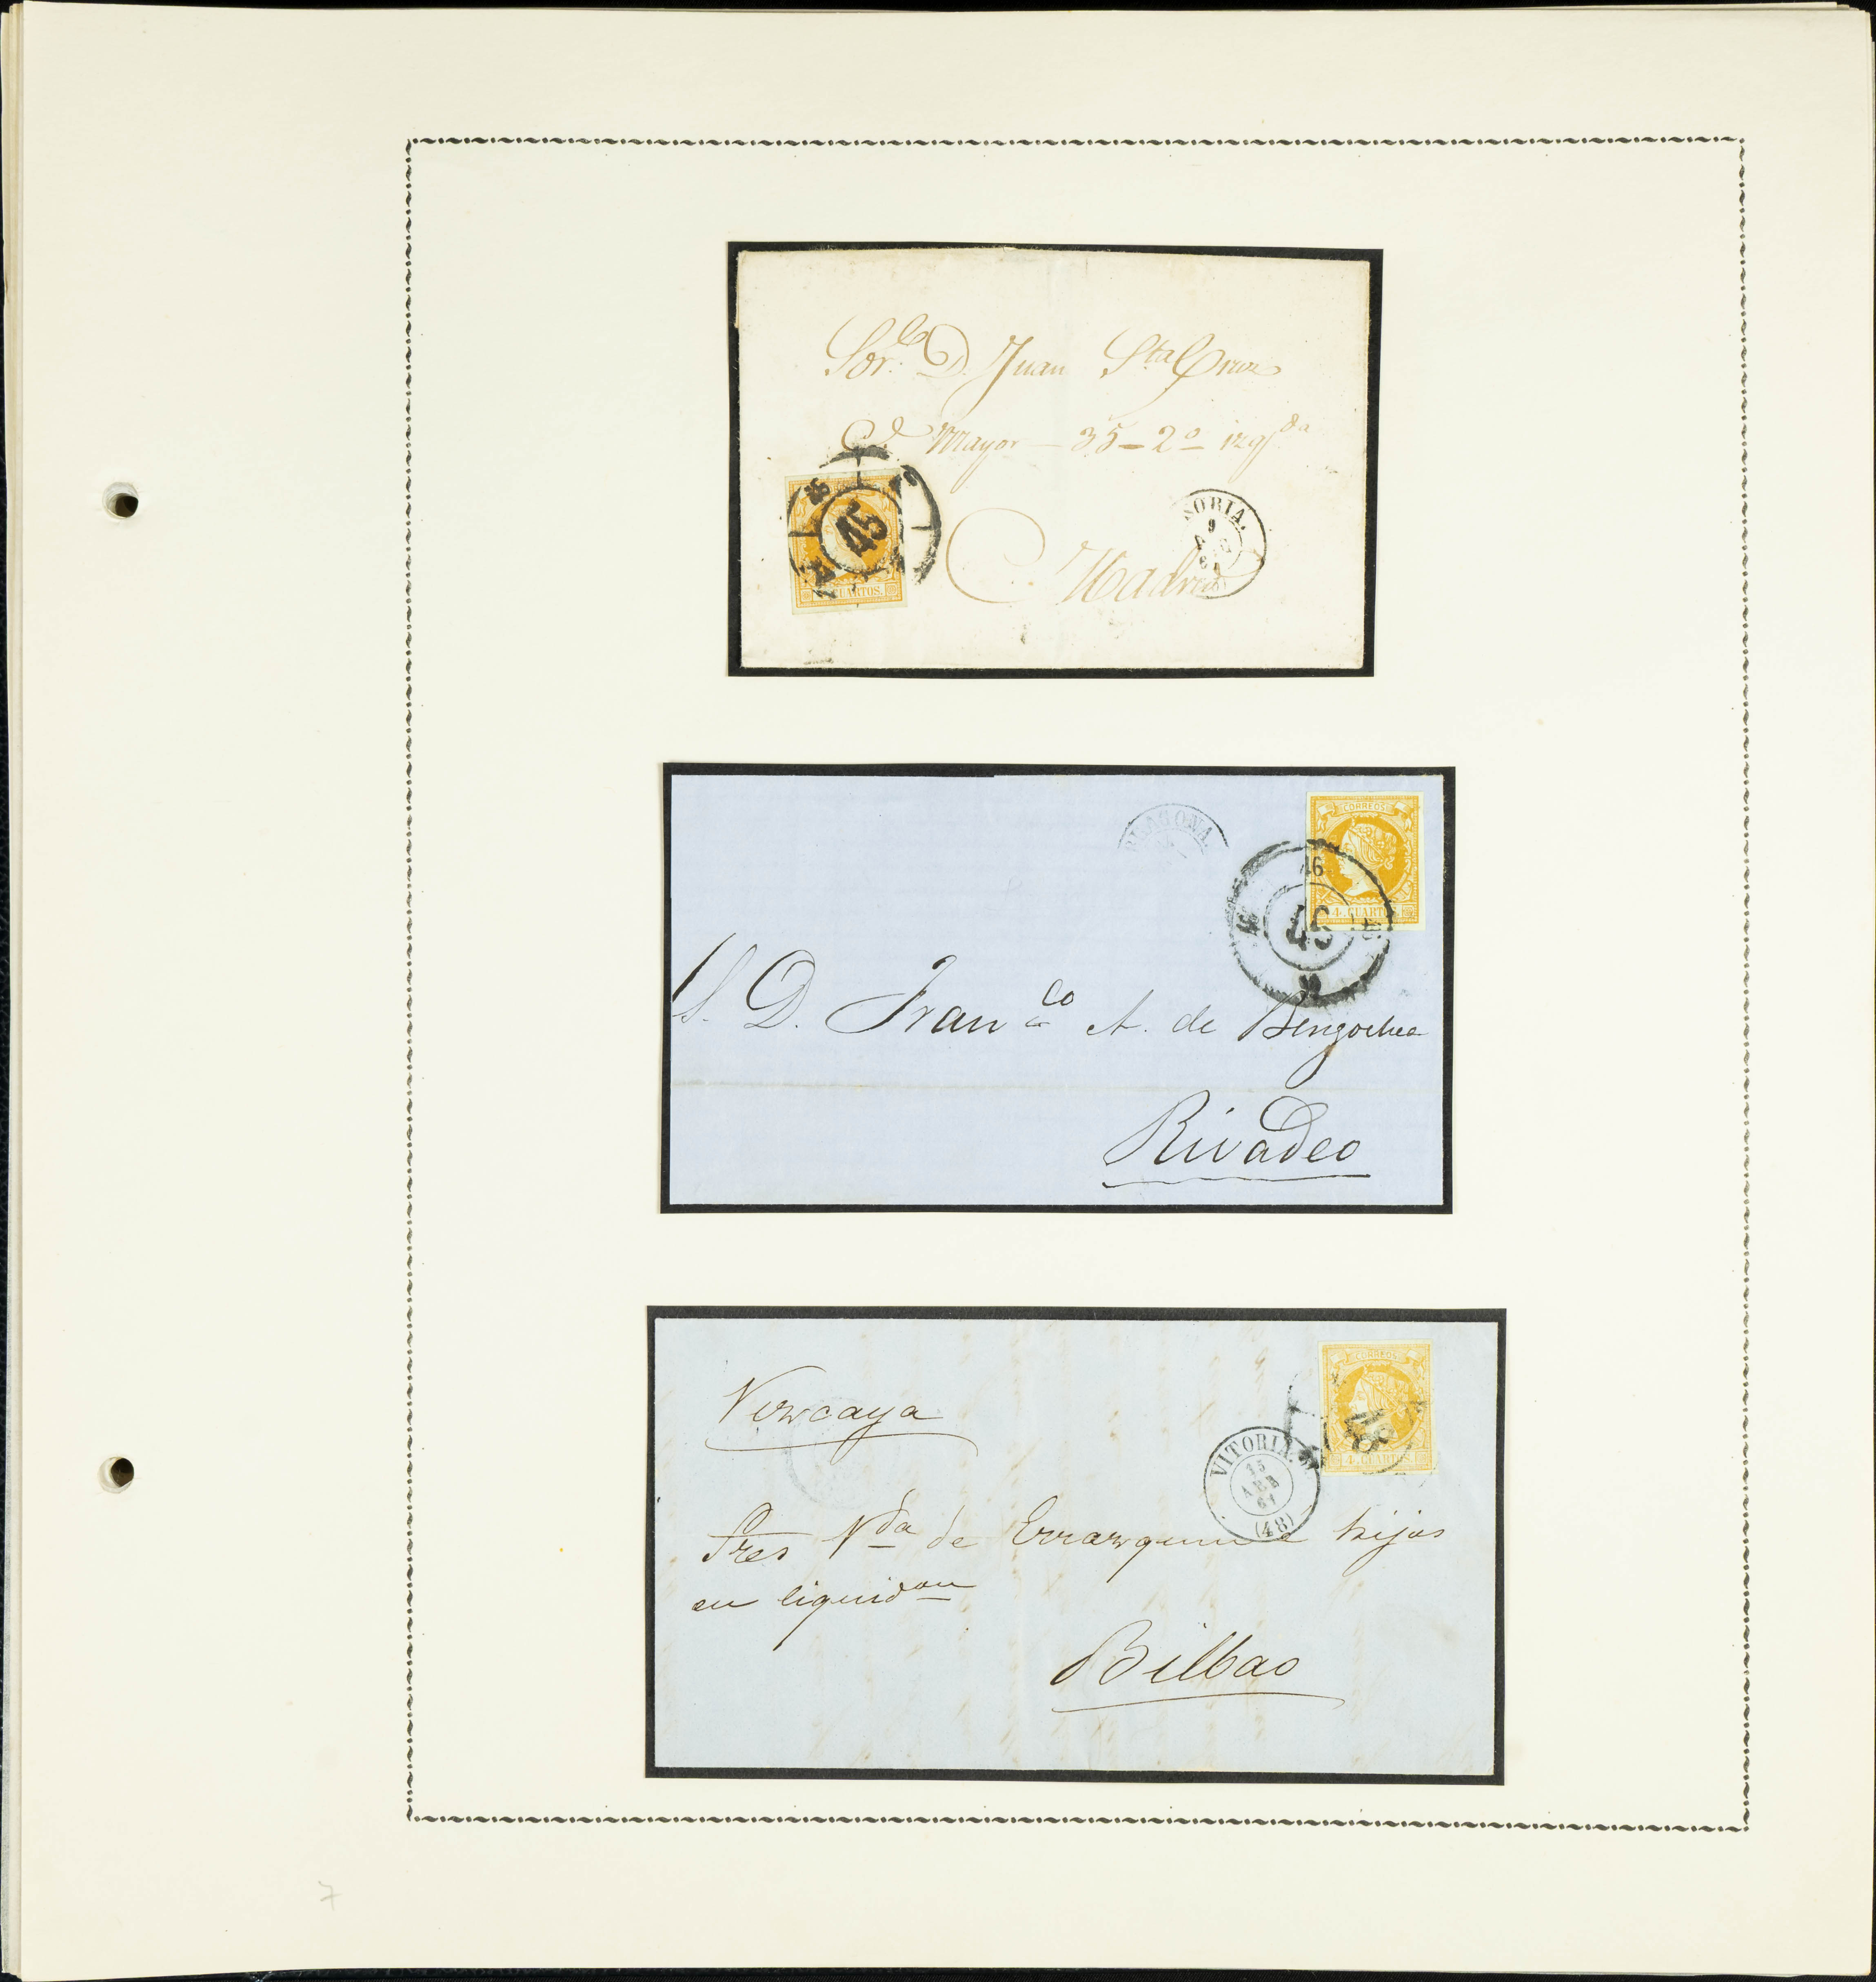 Sor. D. Juan Sta Cruz
Ce Mayor — 35 — 2º izqda
Madrid
45
CUARTOS.
SORIA.
9
CORREOS
46
46
4. CUARTOS
S. D. Franco A. de Bengochea
Rivadeo
CORREOS
48
4. CUARTOS.
VITORIA.
15
ABR
61
(48)
Vizcaya
Sres Vda de Errazquin e hijos
en liquidon
Bilbao
7